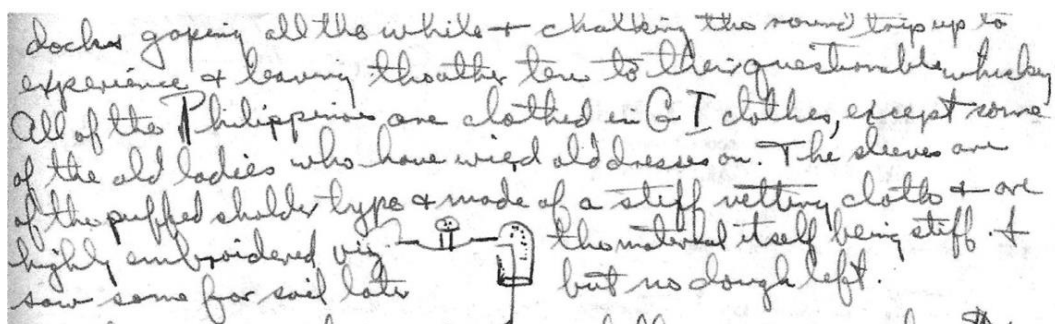 docks gaping all the while + chalking the round trip up to
experience & leaving the other ten to their questionable whiskey
All of the Philippinos are clothed in GI clothes, except some
of the old ladies who have wierd old dresses on. The sleeves are
of the puffed sholder type & made of a stiff netting cloth & are
highly embroidered viz. the material itself being stiff. I
saw some for sail later but no dough left.